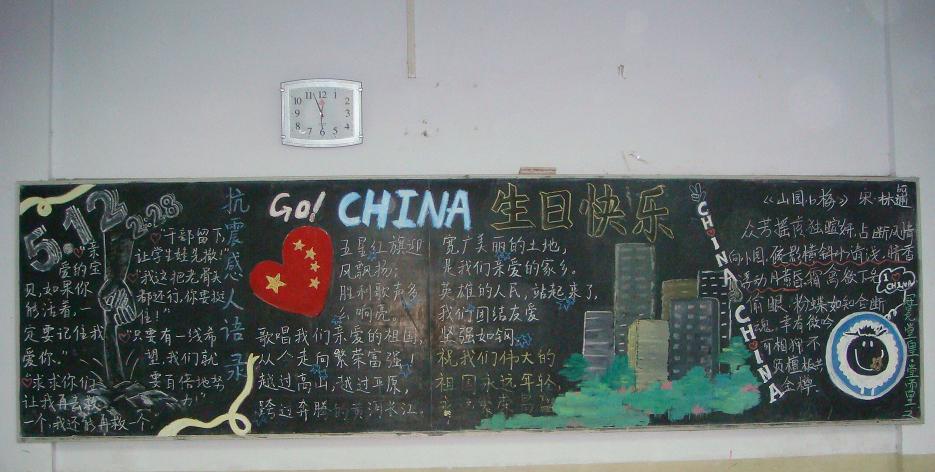 5.12
2:28
"亲
爱的宝
贝,如果你
能活着,一
定要记住我
爱你。"
求求你们
让我再去救
一个,我还能再救一个
"干部留下,
让学生娃先撤!"
"我这把老骨头
都还行,你要挺
住!"
"只要有一线希
望,我们就
要百倍地努
力!"
抗震感人语录
Go! CHINA 生日快乐
五星红旗迎
风飘扬;
胜利歌声多
么响亮。
歌唱我们亲爱的祖国,
从今走向繁荣富强!
越过高山,越过平原,
跨过奔腾的黄河长江,
宽广美丽的土地,
是我们亲爱的家乡。
英雄的人民,站起来了,
我们团结友爱
坚强如钢
祝我们伟大的
祖国永远年轻
CHINA
CHINA
《山园小梅》 宋·林逋
众芳摇落独暄妍,占断风情
向小园,疏影横斜水清浅,暗香
浮动月黄昏,霜禽欲下先
偷眼,粉蝶如知合断
魂,幸有微吟
可相狎,不
须檀板共
金樽.
CHINA
12
1
2
3
4
5
6
7
8
9
10
11